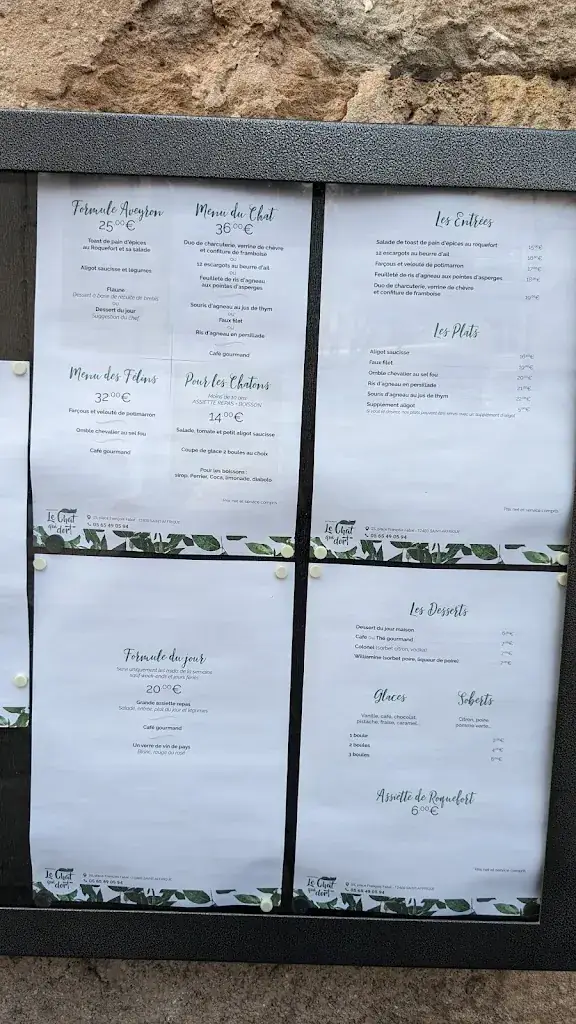 Formule Aveyron
25,00€
Toast de pain d'épices
au Roquefort et sa salade
Aligot saucisse et légumes
Flaune
(dessert à base de recuite de brebis)
ou
Dessert du jour
Suggestion du chef
Menu du Chat
36,00€
Duo de charcuterie, verrine de chèvre
et confiture de framboise
ou
12 escargots au beurre d'ail
ou
Feuilleté de ris d'agneau
aux pointes d'asperges
Souris d'agneau au jus de thym
ou
Faux filet
ou
Ris d'agneau en persillade
Café gourmand
Menu des Félins
32,00€
Farçous et velouté de potimarron
Omble chevalier au sel fou
Café gourmand
Pour les Chatons
Moins de 10 ans
ASSIETTE REPAS + BOISSON
14,00€
Salade, tomate et petit aligot saucisse
Coupe de glace 2 boules au choix
Pour les boissons :
sirop, Perrier, Coca, limonade, diabolo
Prix net et service compris
Le Chat
qui
dort
05 65 49 05 94
Les Entrées
Salade de toast de pain d'épices au roquefort
12 escargots au beurre d'ail
Farçous et velouté de potimarron
Feuilleté de ris d'agneau aux pointes d'asperges
Duo de charcuterie, verrine de chèvre
et confiture de framboise
Les Plats
Aligot saucisse
Faux filet
Omble chevalier au sel fou
Ris d'agneau en persillade
Souris d'agneau au jus de thym
Supplément aligot
Prix net et service compris
Le Chat
qui
dort
05 65 49 05 94
Formule du jour
Servi uniquement les midis de la semaine
sauf week-ends et jours fériés
20,00€
Grande assiette repas
Salade, entrée, plat du jour et légumes
Café gourmand
Un verre de vin de pays
Blanc, rouge ou rosé
Le Chat
qui
dort
05 65 49 05 94
Les Desserts
Dessert du jour maison
Café ou Thé gourmand
Colonel (sorbet citron, vodka)
Williamine (sorbet poire, liqueur de poire)
Glaces
Vanille, café, chocolat,
pistache, fraise, caramel
Sorbets
Citron, poire,
pomme verte...
1 boule
2 boules
3 boules
Assiette de Roquefort
6,00€
Prix net et service compris
Le Chat
qui
dort
05 65 49 05 94